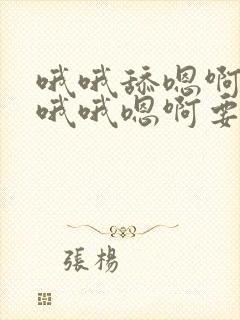 哦哦舔嗯啊
哦哦嗯啊要
張楊